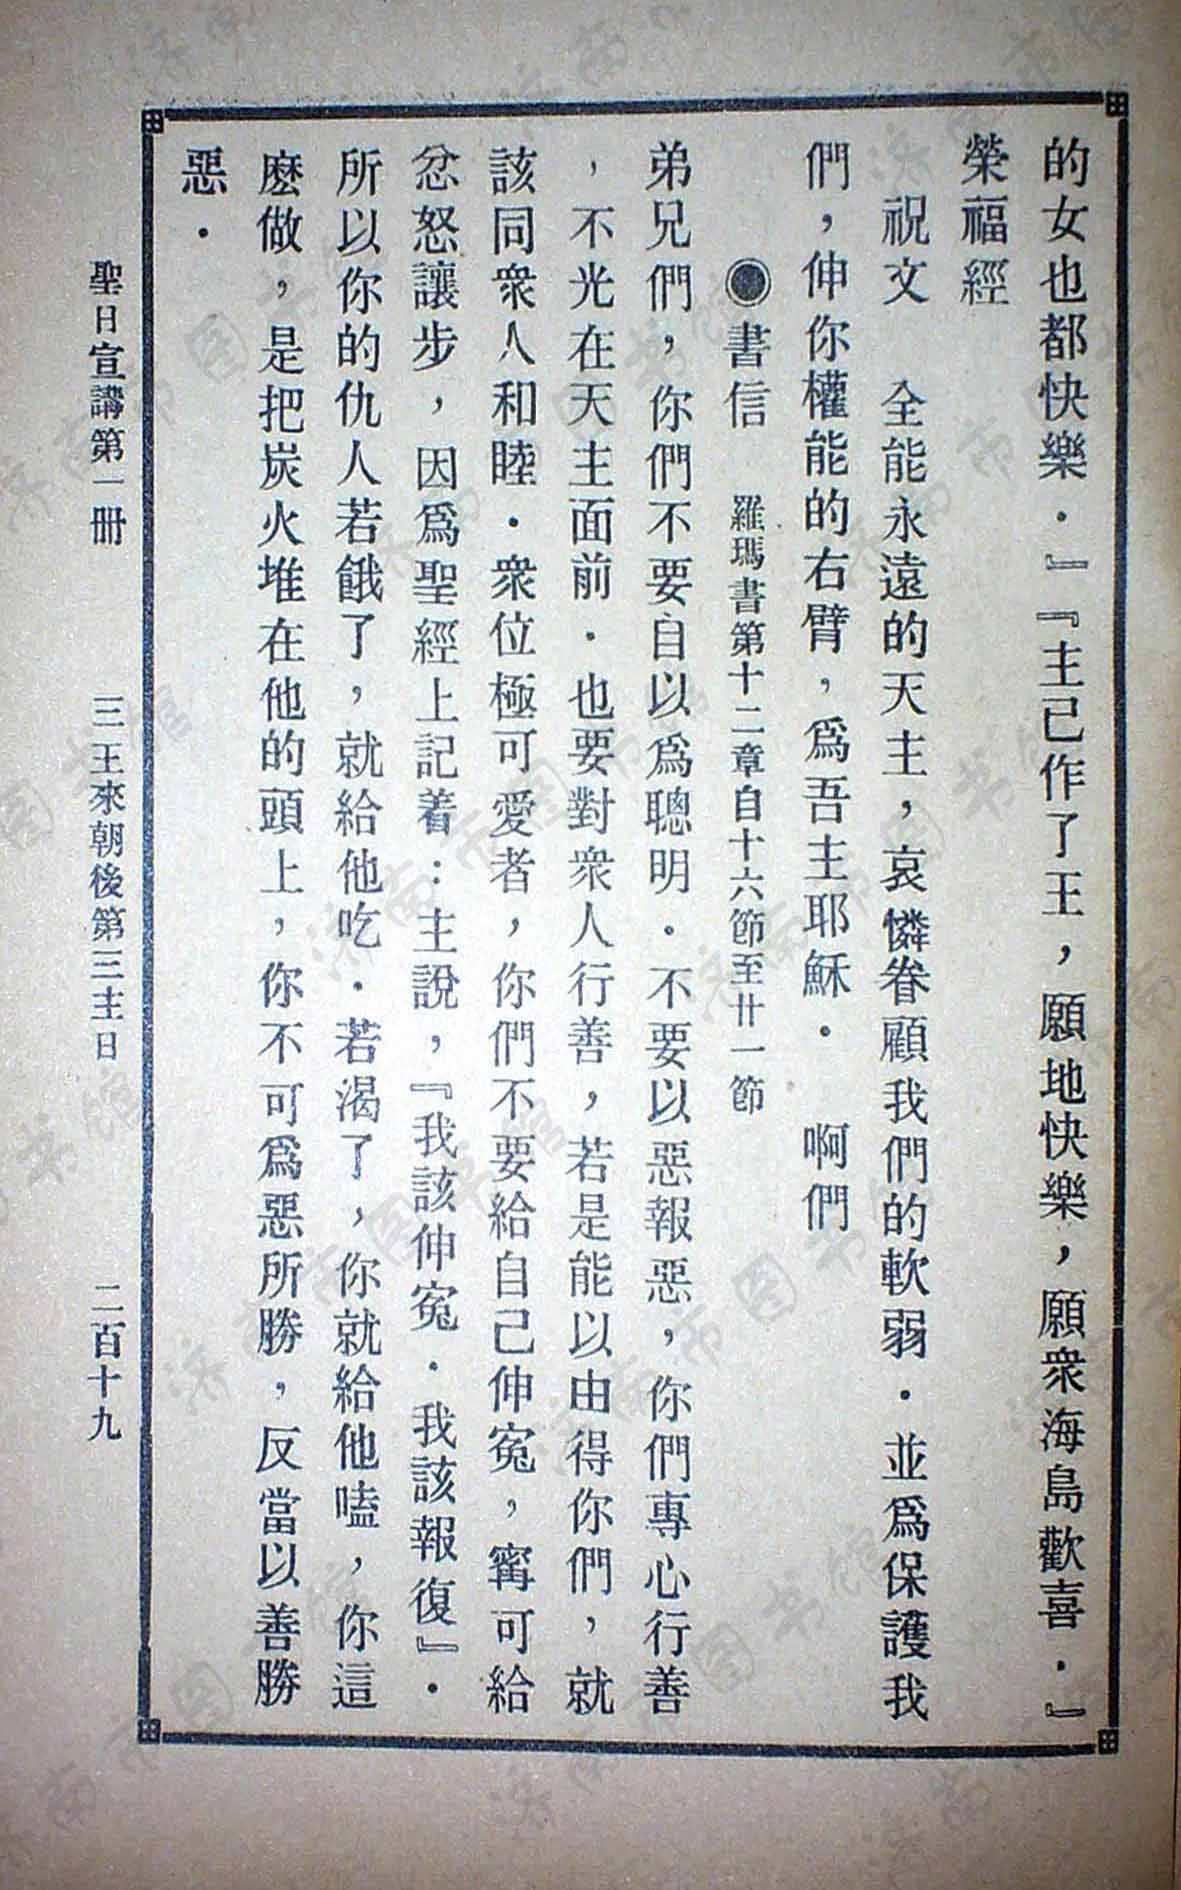 的女也都快樂．』『主已作了王，願地快樂，願衆海島歡喜．』
榮福經
祝文　全能永遠的天主，哀憐眷顧我們的軟弱．並爲保護我
們，伸你權能的右臂，爲吾主耶穌．　啊們
◉書信　羅瑪書第十二章自十六節至廿一節
弟兄們，你們不要自以爲聰明．不要以惡報惡，你們專心行善
，不光在天主面前．也要對衆人行善，若是能以由得你們，就
該同衆人和睦．衆位極可愛者，你們不要給自己伸寃，寗可給
忿怒讓步，因爲聖經上記着：主說，『我該伸寃．我該報復』．
所以你的仇人若餓了，就給他吃．若渴了，你就給他嗑，你這
麽做，是把炭火堆在他的頭上，你不可爲惡所勝，反當以善勝
惡．
聖日宣講第一册　三王來朝後第三主日　二百十九
济南市图书馆